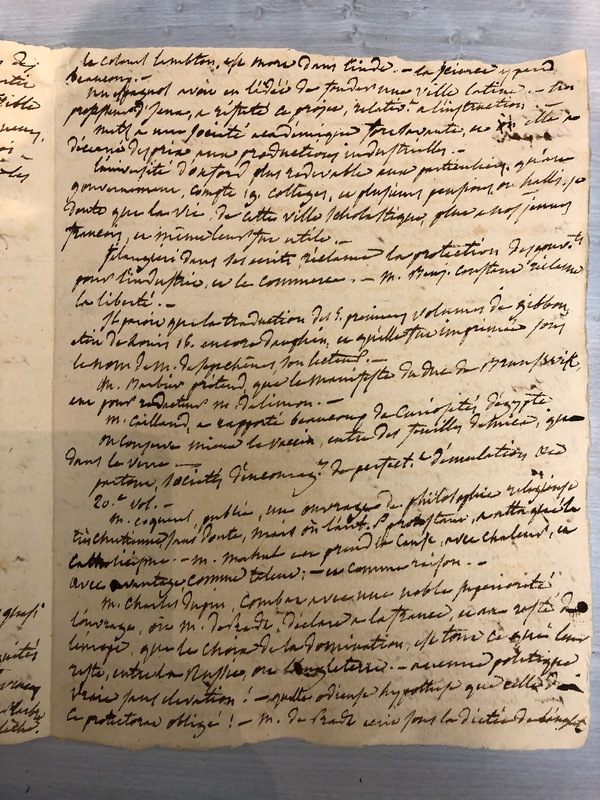 le colonel Lambton, est mort dans l'inde. – la science y perd
beaucoup. –
un espagnol avoit eu l'idée de fonder une ville latine. – un
professeur d'Jena, a réfuté ce projet, relatif a l'instruction
Metz, a une société académique florissante, et elle a
décerné des prix aux productions industrielles. –
l'université d'oxford plus redevable aux particuliers, qu'au
gouvernement, compte 19. colleges, et plusieurs pensions, ou halls. je
doute que la vie, de cette ville scholastique, plut a nos jeunes
françois, et même leur fut utile. –
filangieri dans ses ecrits, réclame la protection des gouv.ts
pour l'industrie, et le commerce. – M. Benj. constant réclame
la liberté. –
Il paroit que la traduction des 5. premiers volumes de gibbon
etoit de Louis 16. encore dauphin, et qu'elle fut imprimée sous
le nom de M. de septchênes son lecteur. –
M. Barbier prétend que le Manifeste du duc de Brunswick,
eut pour rédacteur M. de limon. –
M. Cailliaud, a rapporté beaucoup de curiosités d'égypte
on conserve mieux le vaccin, entre des feuilles de mica, que
dans le verre –
partout, sociétés d'encourag.t de perfect.t d'émulation &c
20.e vol. –
M. coquerel, publie, un ouvrage de philosophie religieuse
très chretienne sans doute, mais où l'aut. protestant, a attaqué le
catholicisme. – M. Mahul en prend la cause, avec chaleur, et
avec avantage comme talent; – et comme raison. –
M. Charles dupin, combat avec une noble supériorité
l'ouvrage, où M. de Pradt, déclare a la france et au reste de
l'europe, que le choix de la domination, est tout ce qui leur
reste, entre la Russie, ou l'angleterre. – aucune politique
vraie sans elevation! – quelle odieuse hypothese que celle de
ce protectorat obligé! – M. de Pradt ecrit sous la dictée de